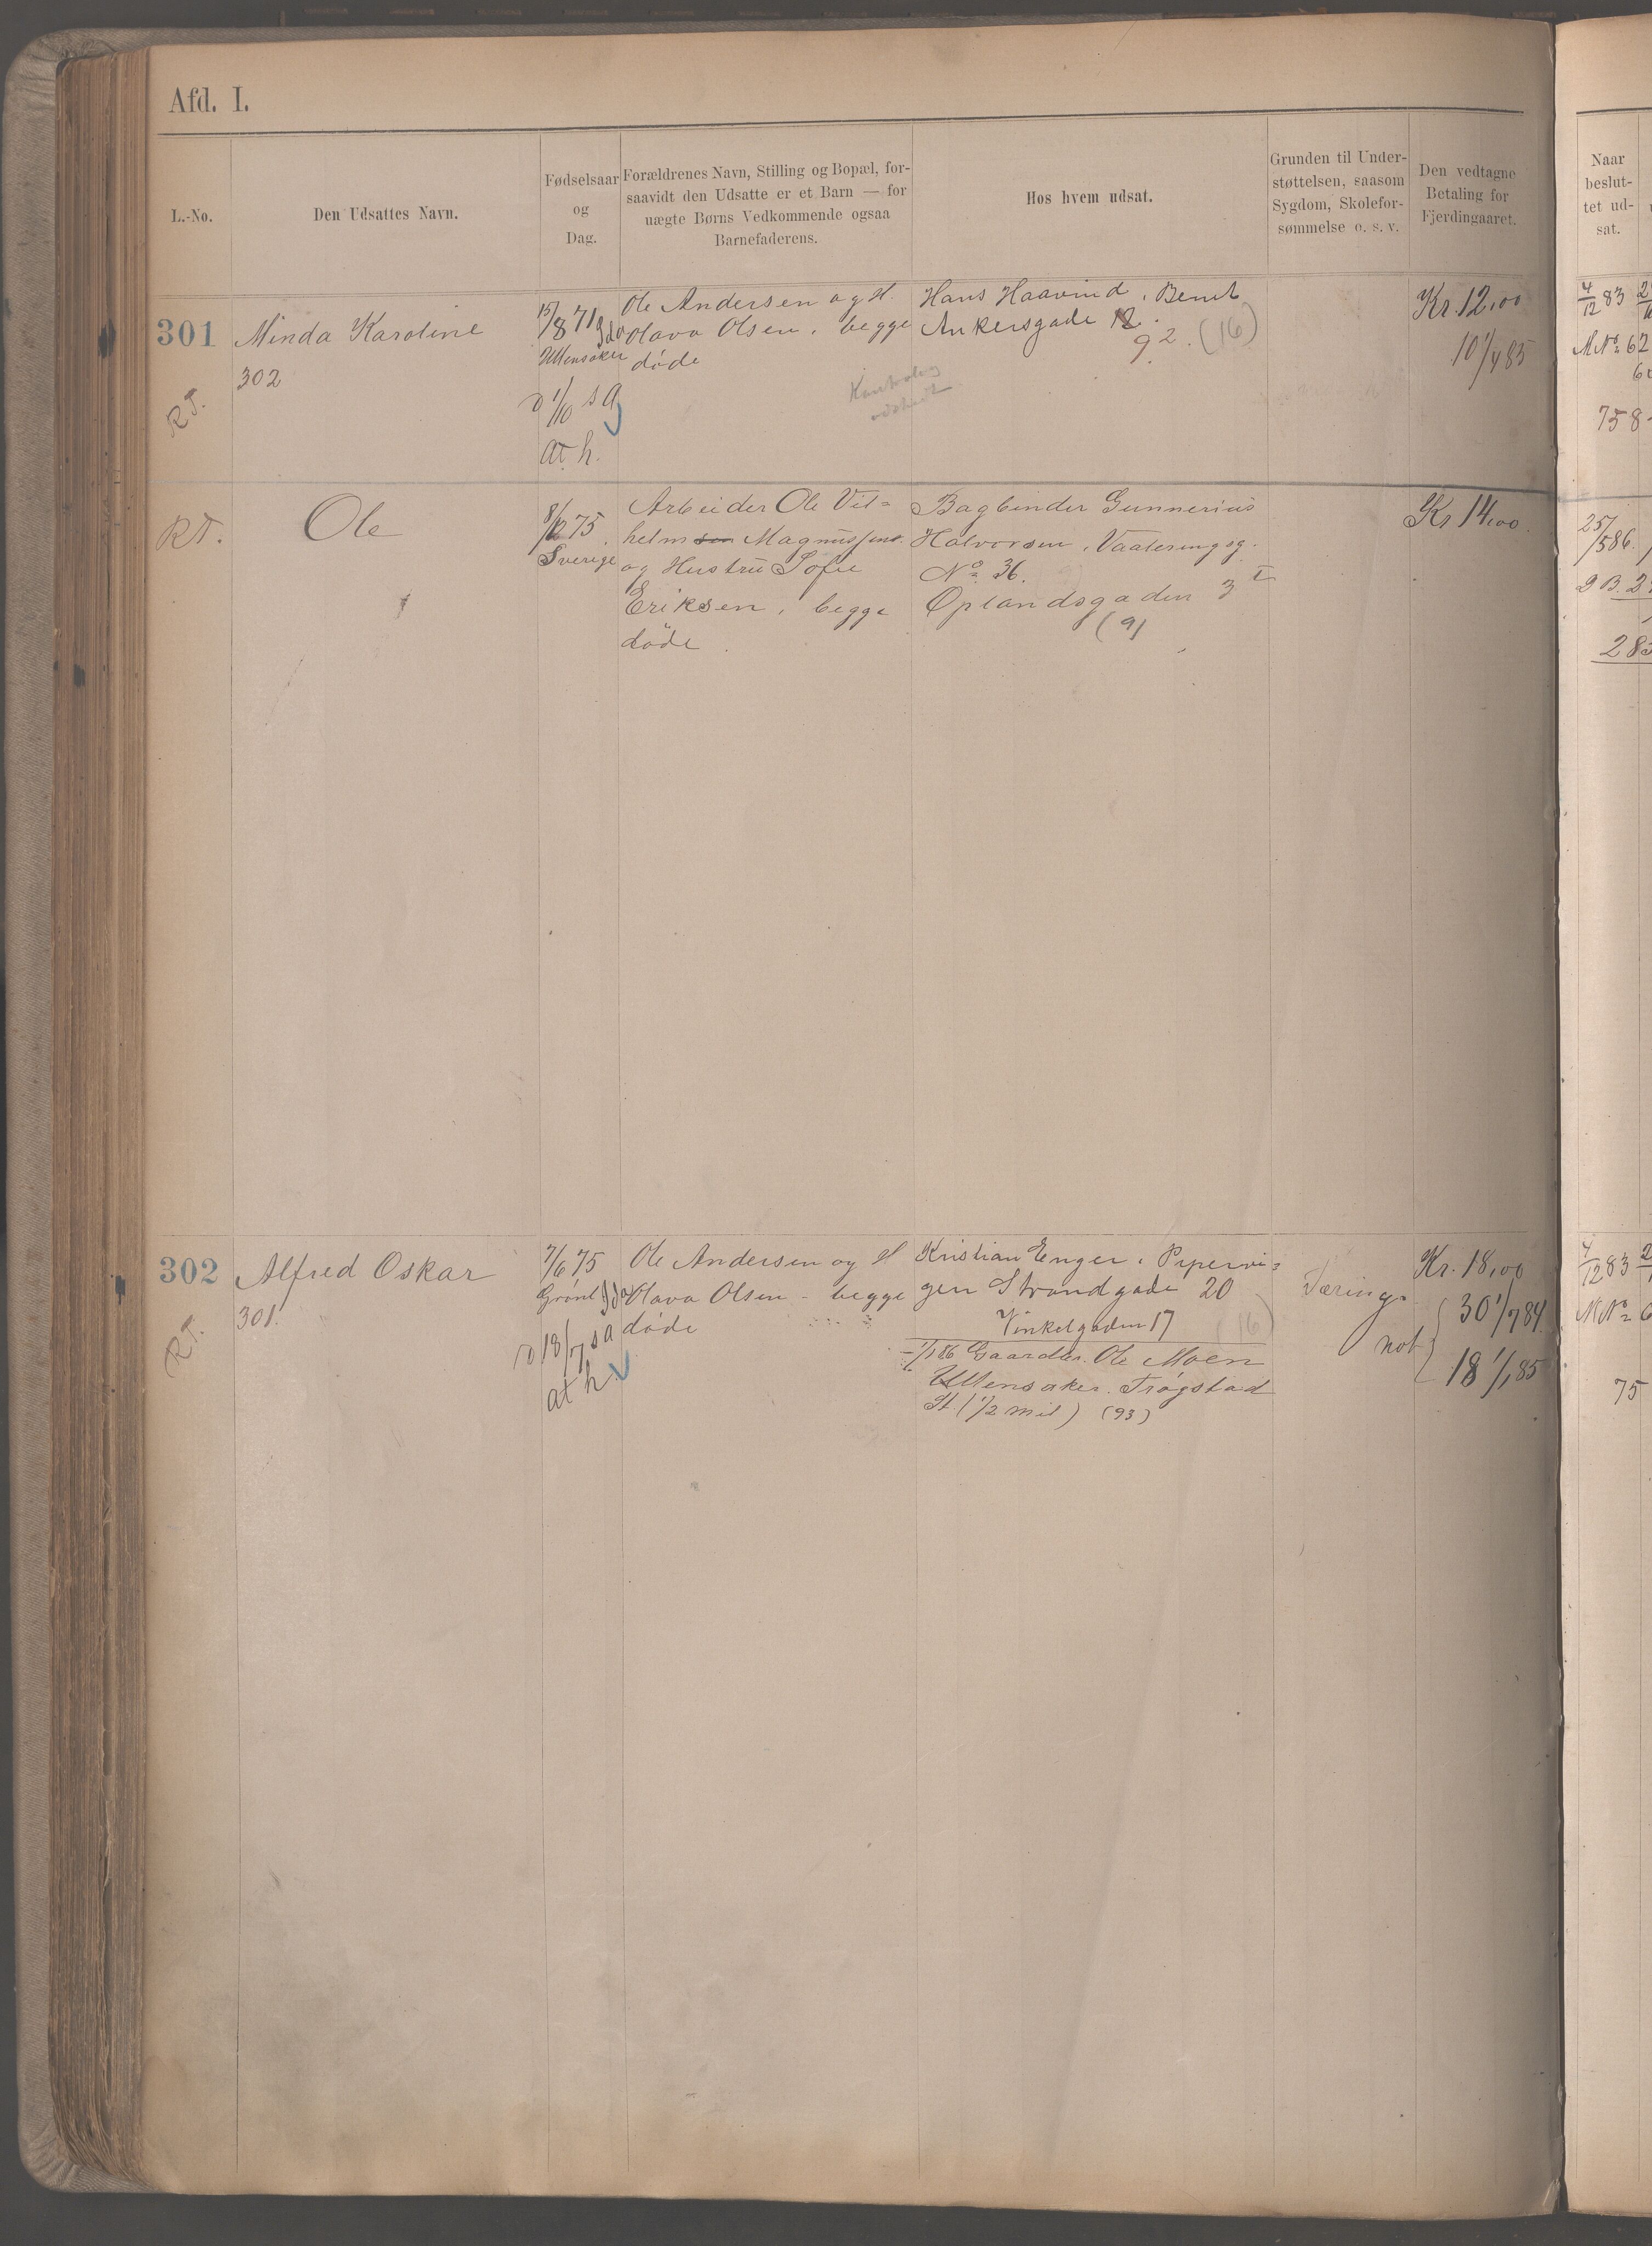 Afd. I.
L.-No.
Den Udsattes Navn.
Fødselsaar
og
Dag.
Forældrenes Navn, Stilling og Bopæl, for-
saavidt den Udsatte er et Barn — for
uægte Børns Vedkommende ogsaa
Barnefaderens.
Hos hvem udsat.
Grunden til Under-
støttelsen, saasom
Sygdom, Skolefor-
sømmelse o. s. v.
Den vedtagne
Betaling for
Fjerdingaaret.
Naar
beslut-
tet ud-
sat.
301
R T.
Minda Karoline
302
15/8 71
Ullensaker
D 1/10 s a
at h.
Ole Andersen og H.
Olava Olsen, begge
døde
Hans Haavind, Bernt
Ankersgade 12.
9 2. (16)
Kr. 12,00
10 1/4 85
4/12 83
M No 62
758
R T.
Ole
8/12 75
Sverige
Arbeider Ole Vil=
helmsen Magnussens.
og Hustru Sofie
Eriksen, begge
døde.
Bagbinder Gunnerius
Halvorsen, Vaalerengsg.
No 36.
Oplandsgaden 3 I
(9)
Kr 14,00.
25/5 86.
302
R T.
Alfred Oskar
301.
7/6 75
Grønl
D 18/7 s a
at h.
Ole Andersen og H
Olava Olsen - begge
døde
Kristian Enger, Pipervi=
gen Strandgade 20
Vinkelgaden 17
(16)
1/1 86 Gaardbr. Ole Moen
Ullensaker. Trøgstad
St. (1/2 mil) (93)
Tærings
Kr. 18,00
30 1/7 84
18 1/1 85
4/12 83
M No 6
75